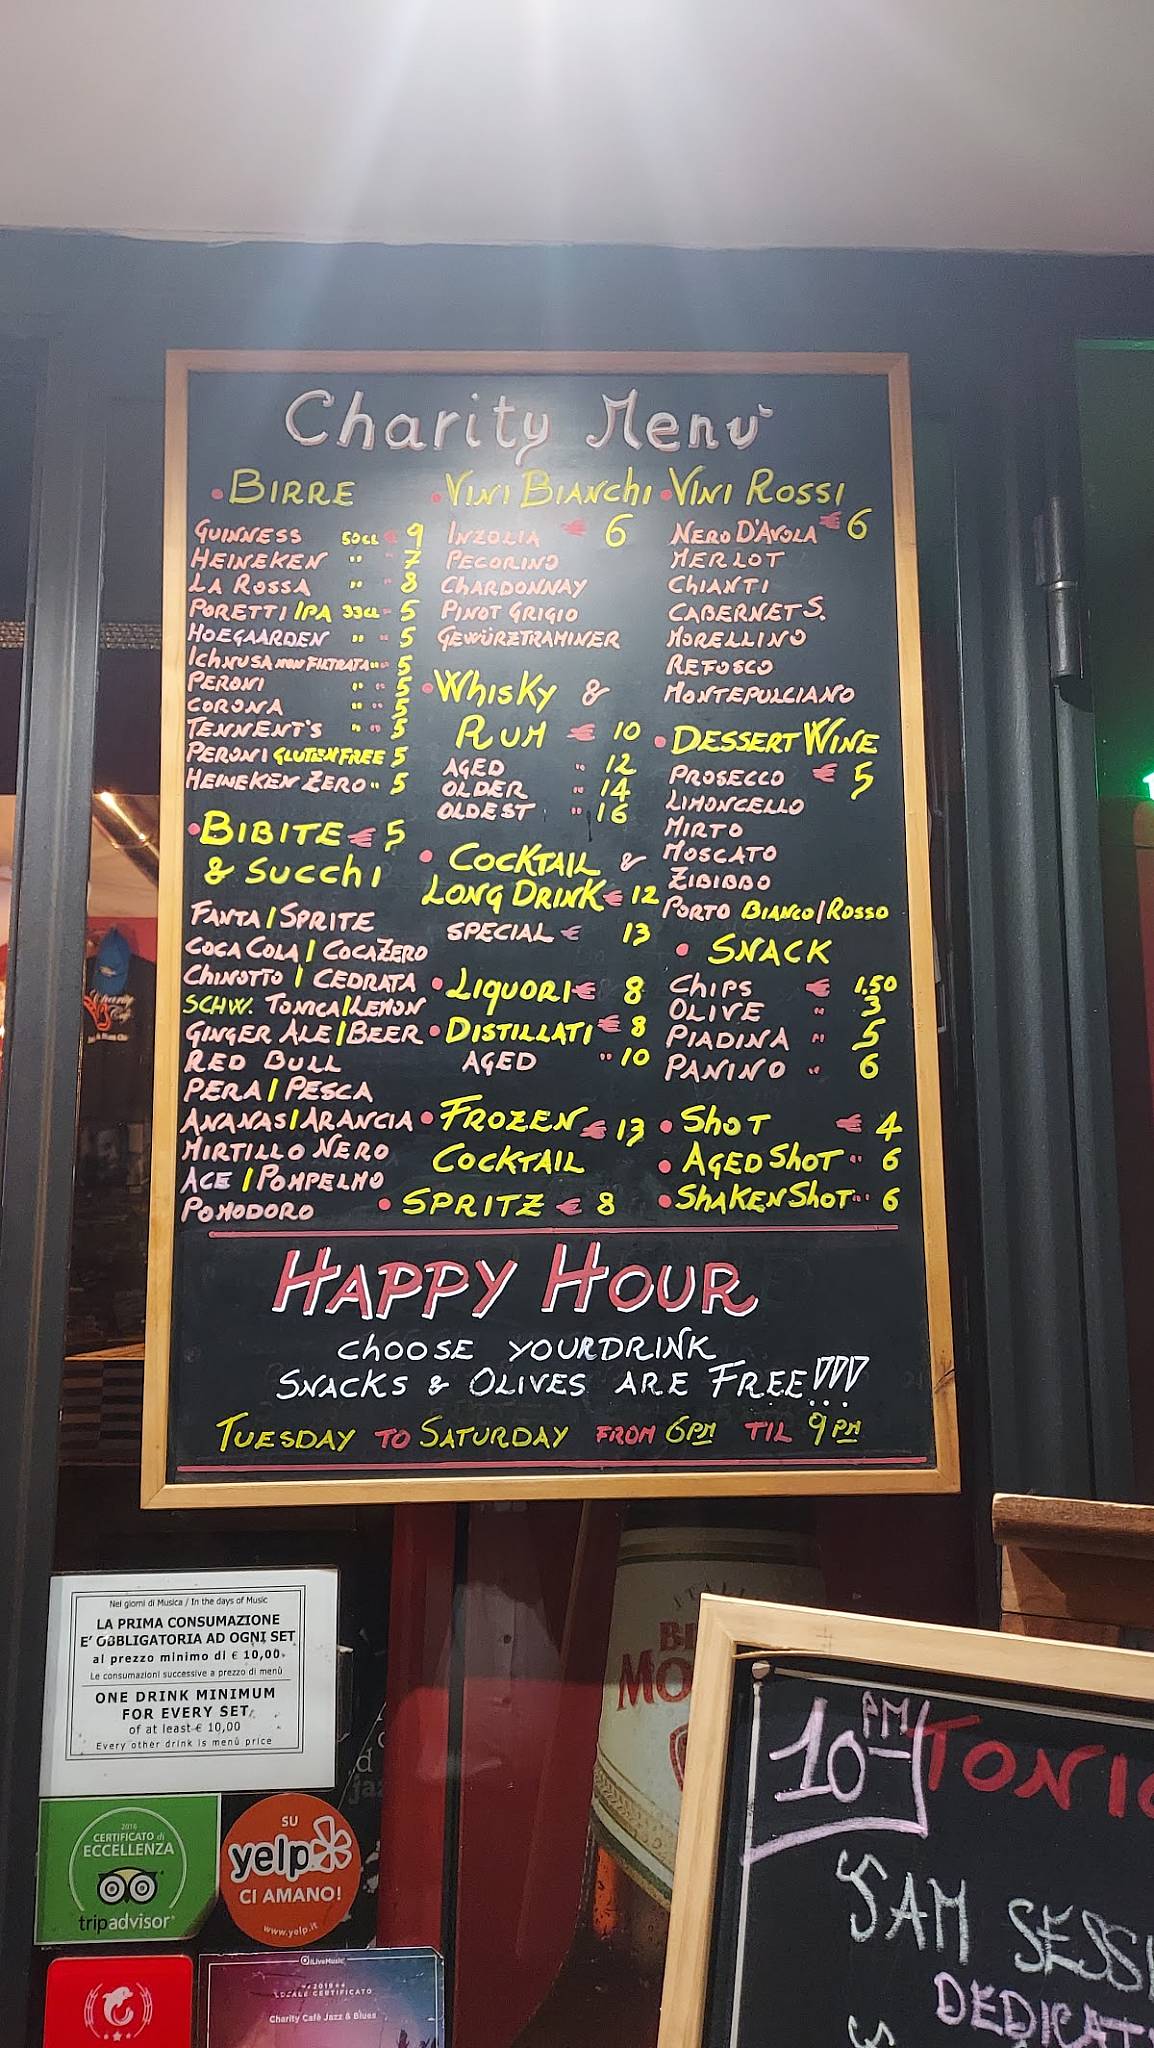 Charity Menù
• BIRRE
GUINNESS 50CL € 9
HEINEKEN " " 7
LA ROSSA " " 8
PORETTI IPA 33CL " 5
HOEGAARDEN " " 5
ICHNUSA NON FILTRATA " " 5
PERONI " " 5
CORONA " " 5
TENNENT'S " " 5
PERONI GLUTEN FREE 5
HEINEKEN ZERO " 5
• BIBITE € 5
& SUCCHI
FANTA / SPRITE
COCA COLA / COCAZERO
CHINOTTO / CEDRATA
SCHW. TONICA / LEMON
GINGER ALE / BEER
RED BULL
PERA / PESCA
ANANAS / ARANCIA
MIRTILLO NERO
ACE / POMPELMO
POMODORO
• VINI BIANCHI
INZOLIA € 6
PECORINO
CHARDONNAY
PINOT GRIGIO
GEWÜRZTRAMINER
• WHISKY &
RUM € 10
AGED " 12
OLDER " 14
OLDEST " 16
• COCKTAIL &
LONG DRINK € 12
SPECIAL € 13
• LIQUORI € 8
• DISTILLATI € 8
AGED " 10
• FROZEN € 13
COCKTAIL
• SPRITZ € 8
• VINI ROSSI
NERO D'AVOLA € 6
MERLOT
CHIANTI
CABERNET S.
MORELLINO
REFOSCO
MONTEPULCIANO
• DESSERT WINE
PROSECCO € 5
LIMONCELLO
MIRTO
MOSCATO
ZIBIBBO
PORTO BIANCO / ROSSO
• SNACK
CHIPS € 1.50
OLIVE " 3
PIADINA " 5
PANINO " 6
• SHOT € 4
• AGED SHOT " 6
• SHAKEN SHOT " 6
HAPPY HOUR
CHOOSE YOURDRINK
SNACKS & OLIVES ARE FREE!!!
TUESDAY TO SATURDAY FROM 6PM TIL 9PM
Nei giorni di Musica / In the days of Music
LA PRIMA CONSUMAZIONE
E' OBBLIGATORIA AD OGNI SET
al prezzo minimo di € 10,00.
Le consumazioni successive a prezzo di menù
ONE DRINK MINIMUM
FOR EVERY SET,
of at least € 10,00
Every other drink is menù price
2016
CERTIFICATO di
ECCELLENZA
tripadvisor
SU
yelp
CI AMANO!
www.yelp.it
LiveMusic
2019
LOCALE CERTIFICATO
Charity Cafè Jazz & Blues
Charity
Cafè
10 PM
JAM